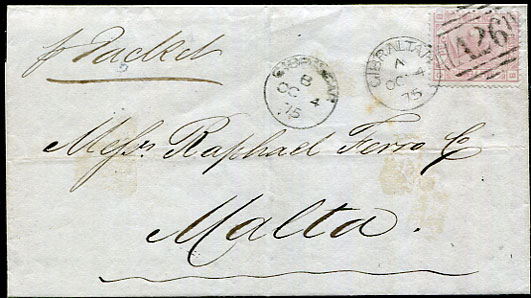 p Packet
GIBRALTAR
B
OC 4
75
GIBRALTAR
A
OC 4
75
A26
Messrs Raphael Ferro & Co
Malta.